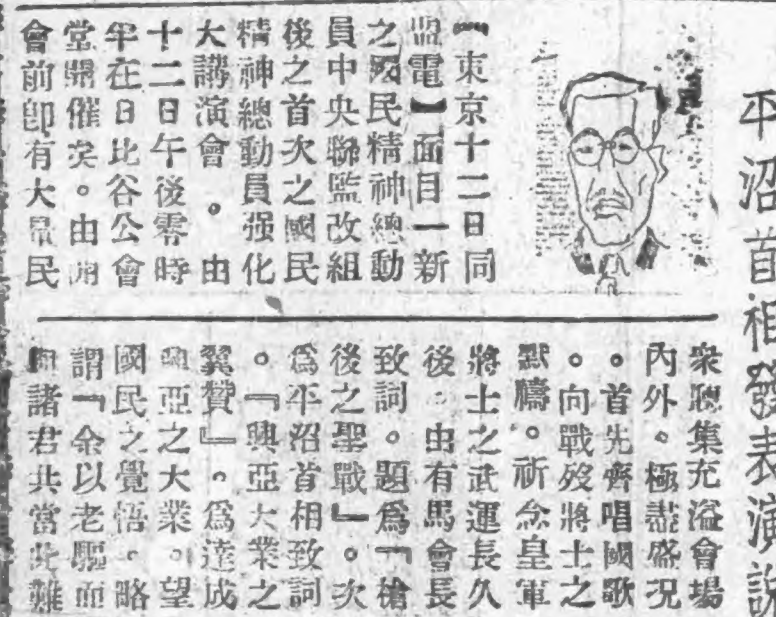 平沼首相發表演說
【東京十二日同
盟電】面目一新
之國民精神總動
員中央聯盟改組
後之首次之國民
精神總動員强化
大講演會。由
十二日午後零時
半在日比谷公會
堂開催矣。由開
會前卽有大量民
衆聽集充溢會場
內外。極盡盛況
。首先齊唱國歌
。向戰歿將士之
默禱。祈念皇軍
將士之武運長久
後。由有馬會長
致詞。題爲『槍
後之聖戰』。次
爲平沼首相致詞
。『興亞大業之
翼贊』。爲達成
興亞之大業。望
國民之覺悟。略
謂『余以老軀而
與諸君共當此難